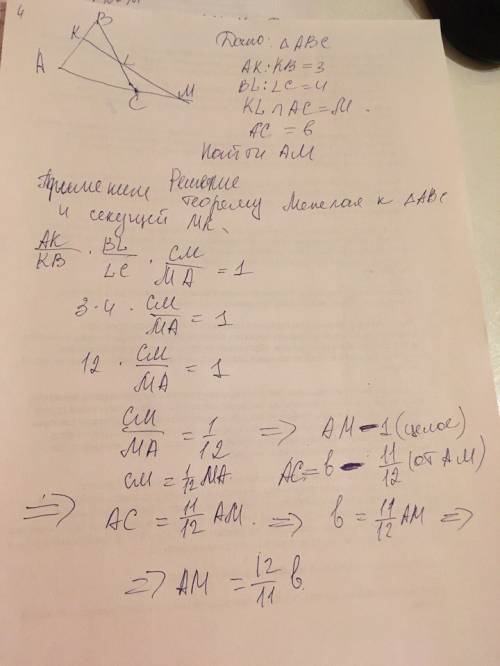 4
B
K
A
L
C
M
Дано: △ABC
AK:KB=3
BL:LC=4
KL∩AC=M.
AC = b
Найти AM
Решение
Применим теорему Менелая к △ABC
и секущей MK.
AK/KB · BL/LC · CM/MA = 1
3·4 · CM/MA = 1
12 · CM/MA = 1
CM/MA = 1/12 => AM – 1 (целое)
CM = 1/12 MA. AC = b – 11/12 (от AM)
=> AC = 11/12 AM. => b = 11/12 AM =>
=> AM = 12/11 b.